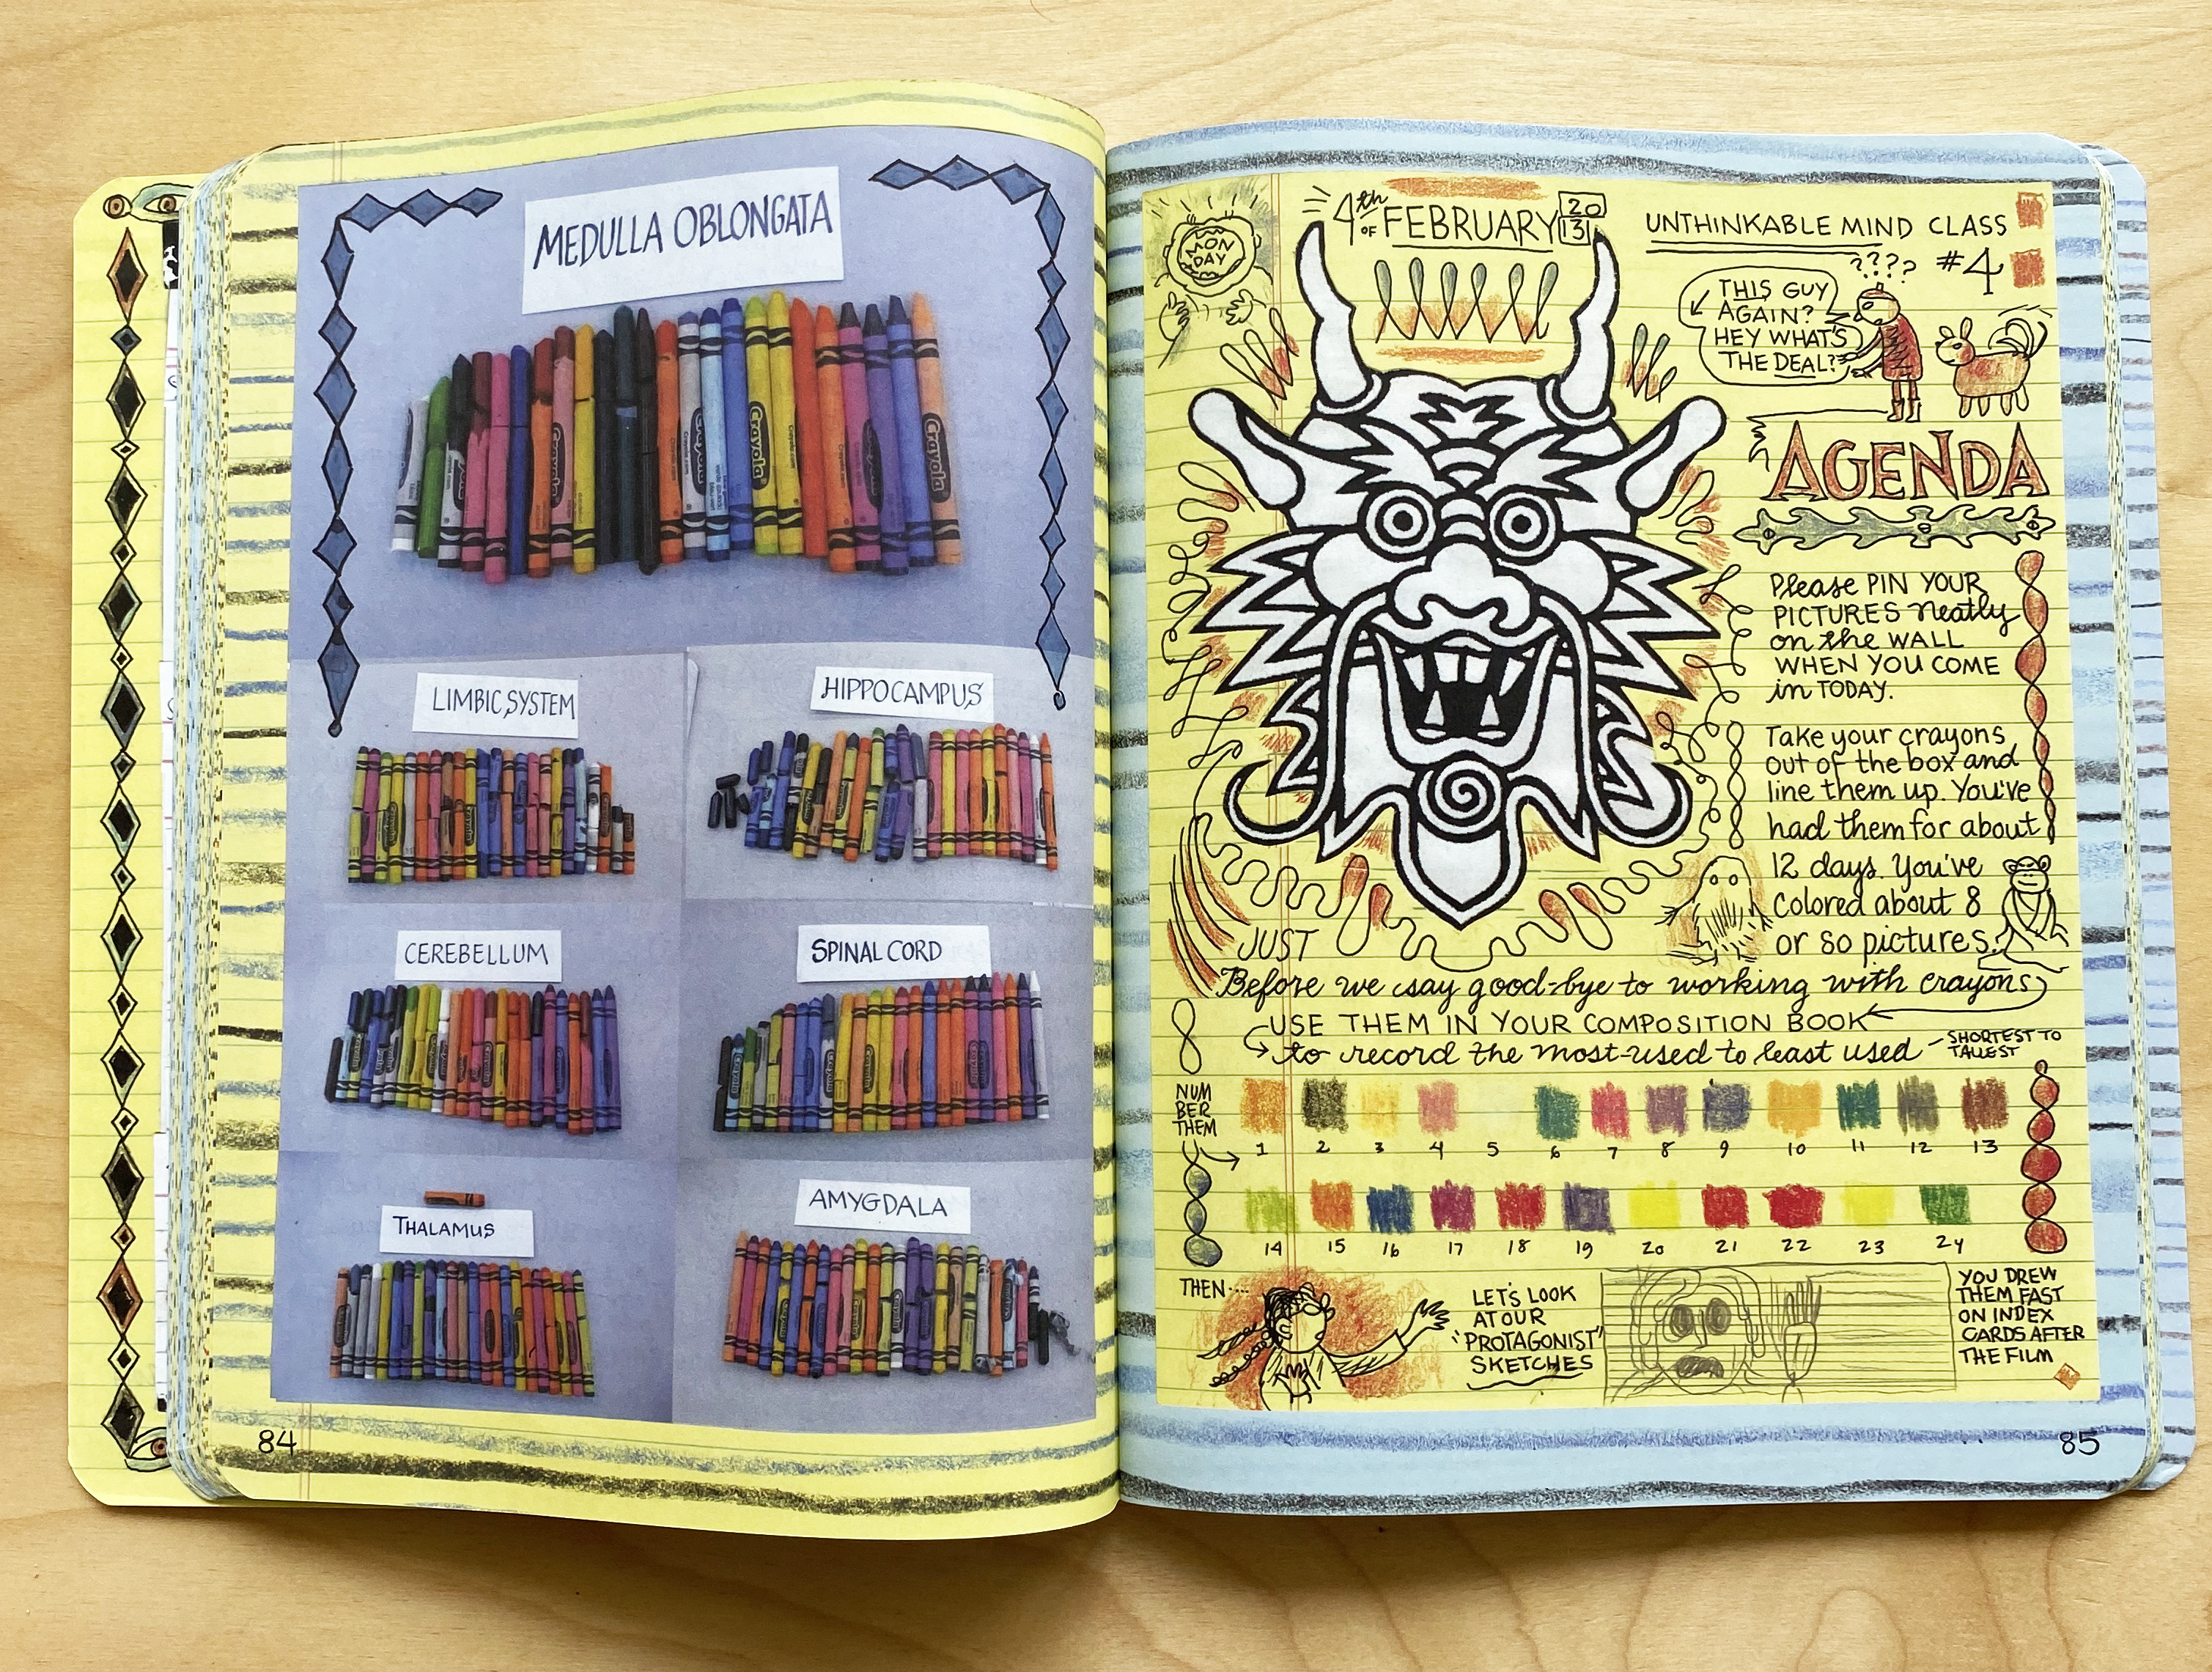 MEDULLA OBLONGATA
Crayola
Crayola
Crayola
LIMBIC SYSTEM
HIPPOCAMPUS
CEREBELLUM
SPINAL CORD
THALAMUS
AMYGDALA
84
MON
DAY
4th OF FEBRUARY 20
13
UNTHINKABLE MIND CLASS
#4
????
THIS GUY
AGAIN?
HEY WHAT'S
THE DEAL?
AGENDA
Please PIN YOUR
PICTURES neatly
on the WALL
WHEN YOU COME
in TODAY.
Take your crayons
out of the box and
line them up. You've
had them for about
12 days. You've
colored about 8
or so pictures.
JUST
Before we say good-bye to working with crayons
USE THEM IN YOUR COMPOSITION BOOK
to record the most-used to least used - SHORTEST TO
TALLEST
NUM
BER
THEM
1 2 3 4 5 6 7 8 9 10 11 12 13
14 15 16 17 18 19 20 21 22 23 24
THEN....
LET'S LOOK
AT OUR
'PROTAGONIST'
SKETCHES
YOU DREW
THEM FAST
ON INDEX
CARDS AFTER
THE FILM
85